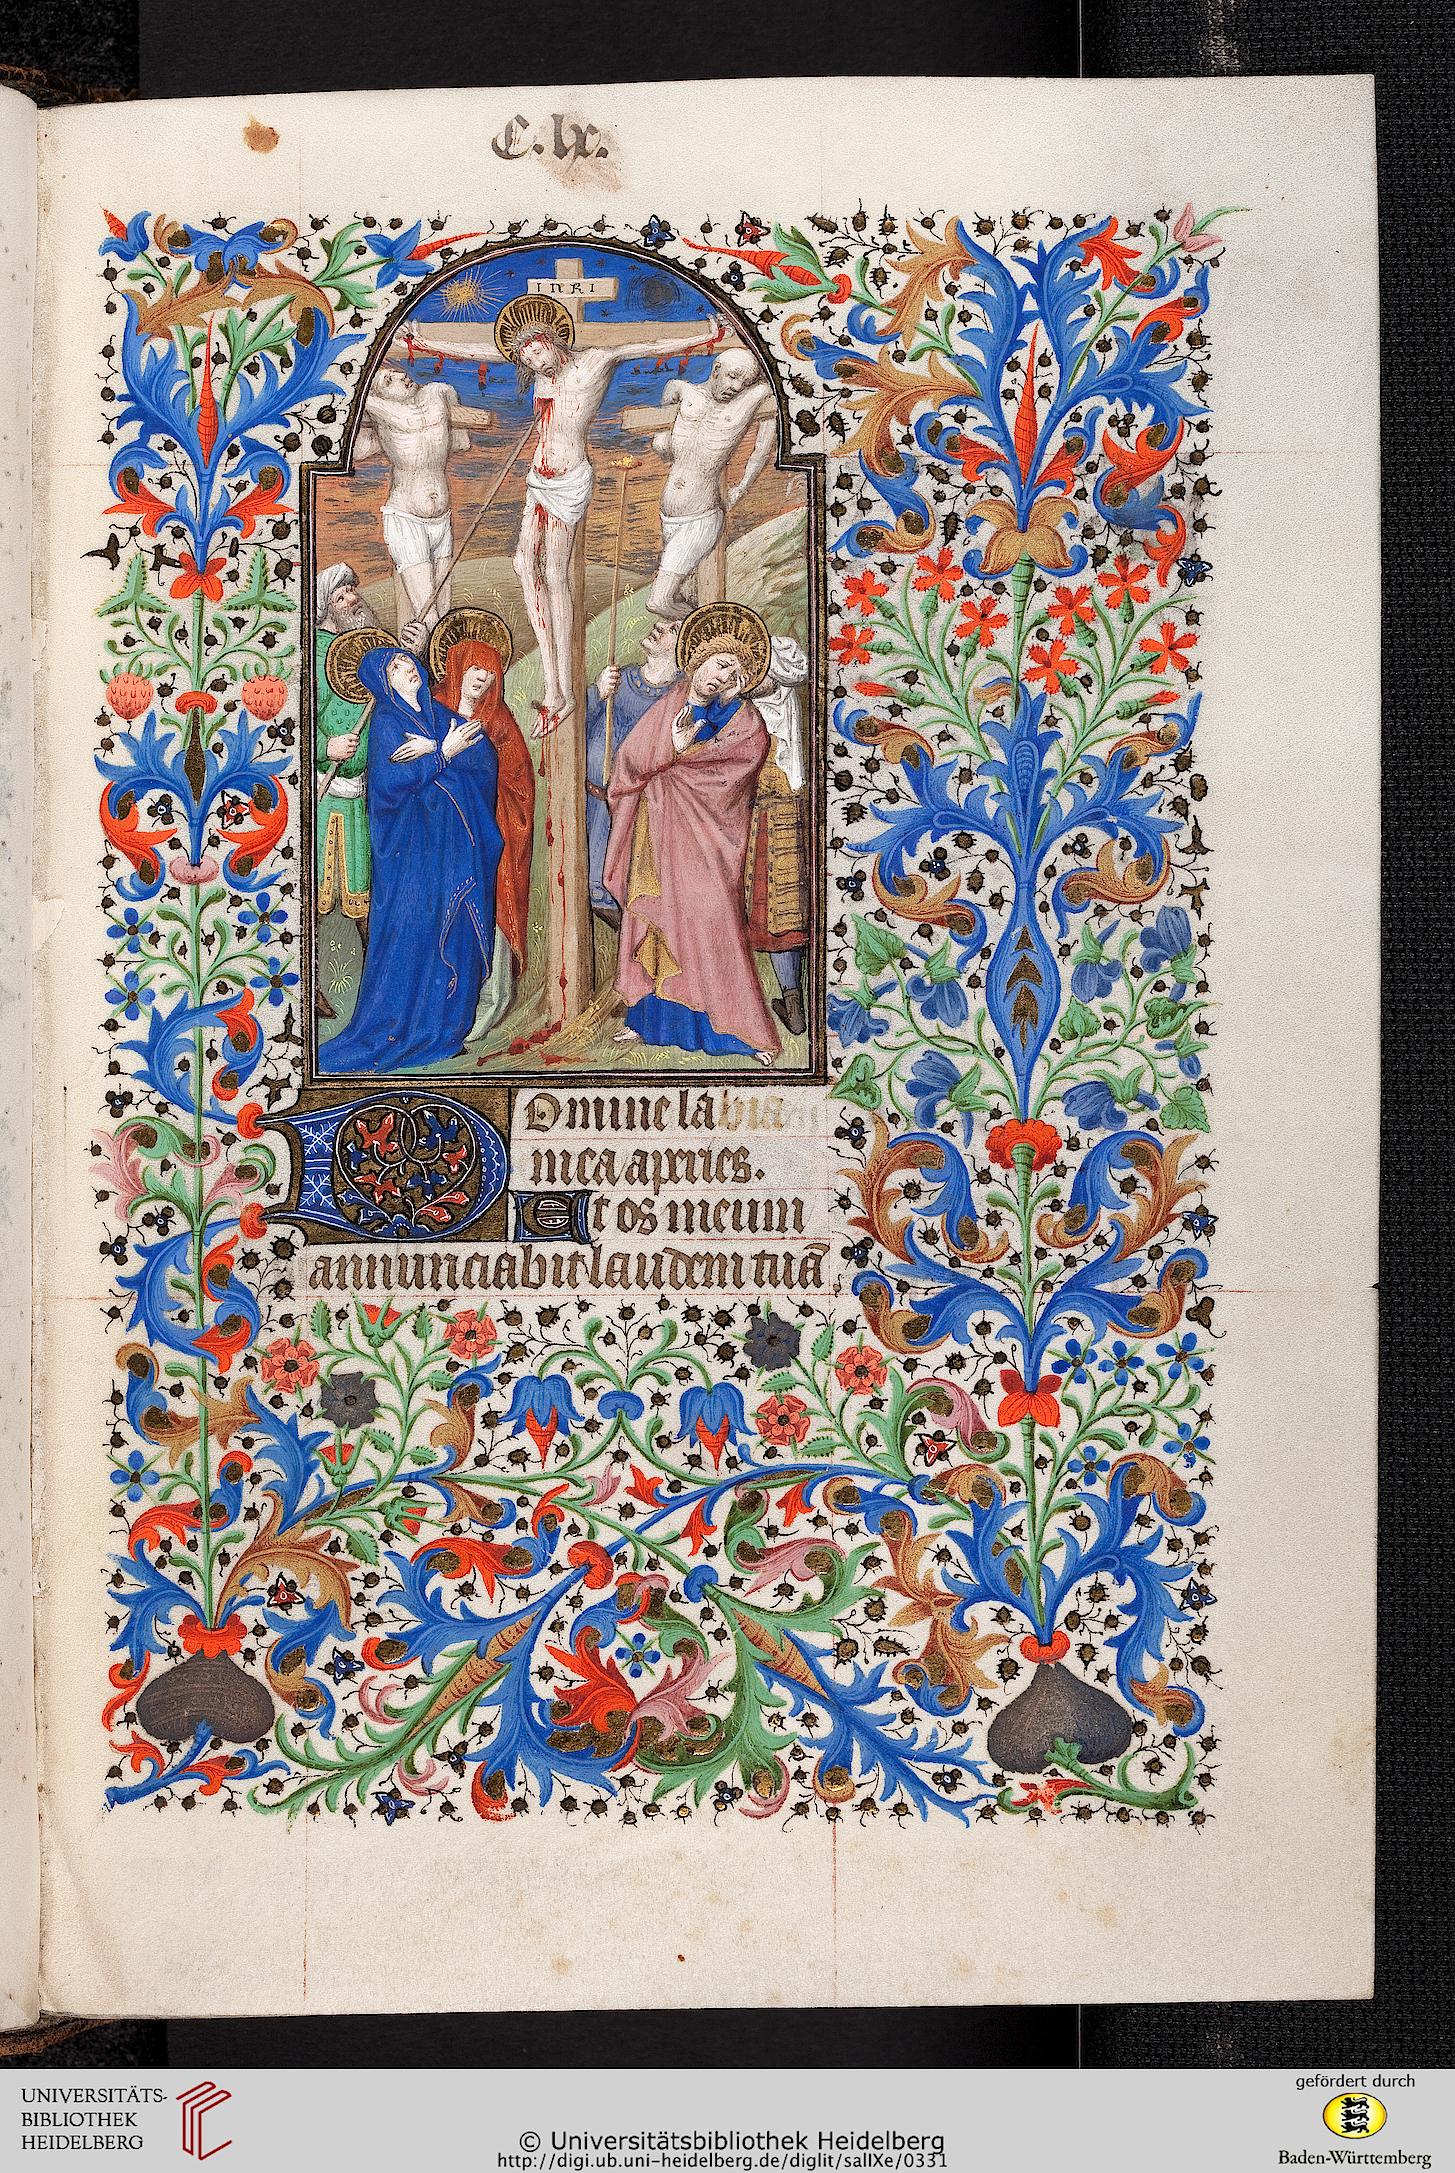 C. lx.
INRI
Domine labia
mea apries.
Et os meum
annunciabit laudem tuã
UNIVERSITÄTS-
BIBLIOTHEK
HEIDELBERG
© Universitätsbibliothek Heidelberg
http://digi.ub.uni-heidelberg.de/diglit/salIXe/0331
gefördert durch
Baden-Württemberg